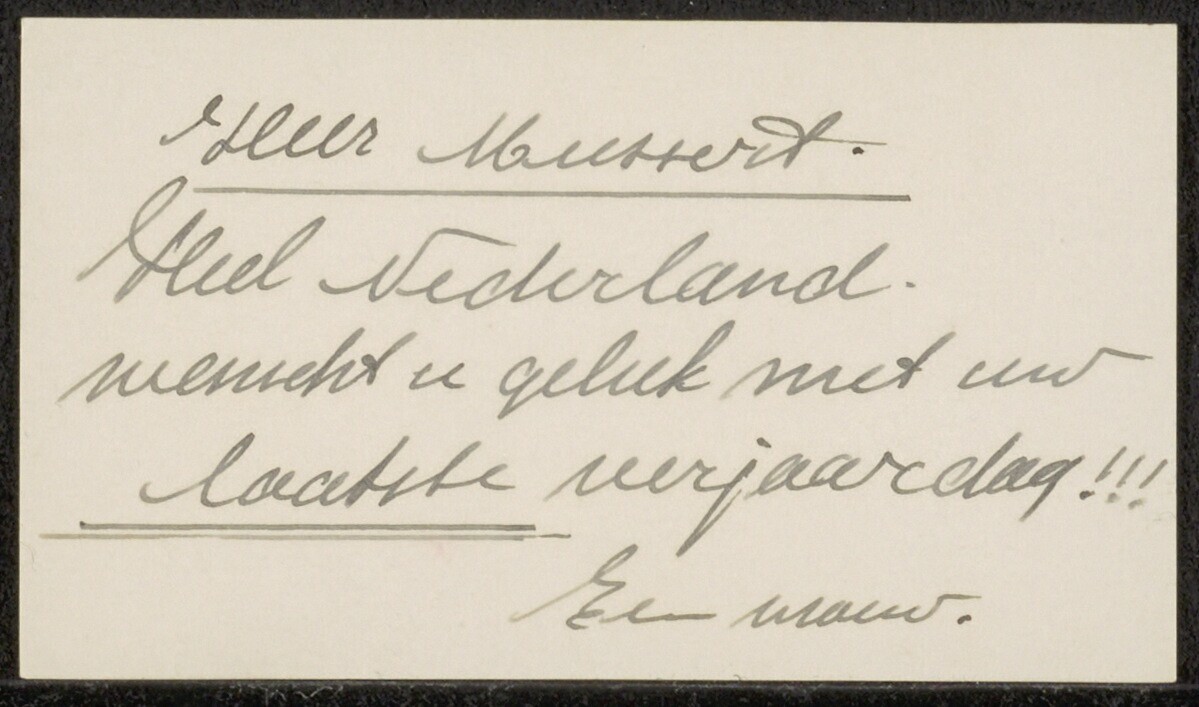 Heer Mussert.
Heel Nederland.
wenscht u geluk met uw
laatste verjaardag!!!
Een vrouw.